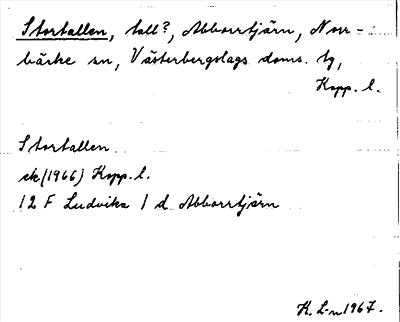 Stortallen, tall?, Abborrtjärn, Norr-
bärke sn, Västerbergslags doms. tg,
Kopp. l.
Stortallen
ek (1966) Kopp. l.
12 F Ludvika 1 d Abborrtjärn
K. L-n 1967.